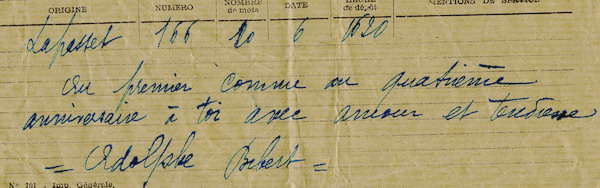 ORIGINE NUMÉRO NOMBRE de mots DATE HEURE de dépôt MENTIONS DE SERVICE
Lapasset 166 20 6 1620
Au premier comme au quatrième
anniversaire à toi avec amour et tendresse
= Adolphe Bebert =
N° 701 - Imp. Générale.